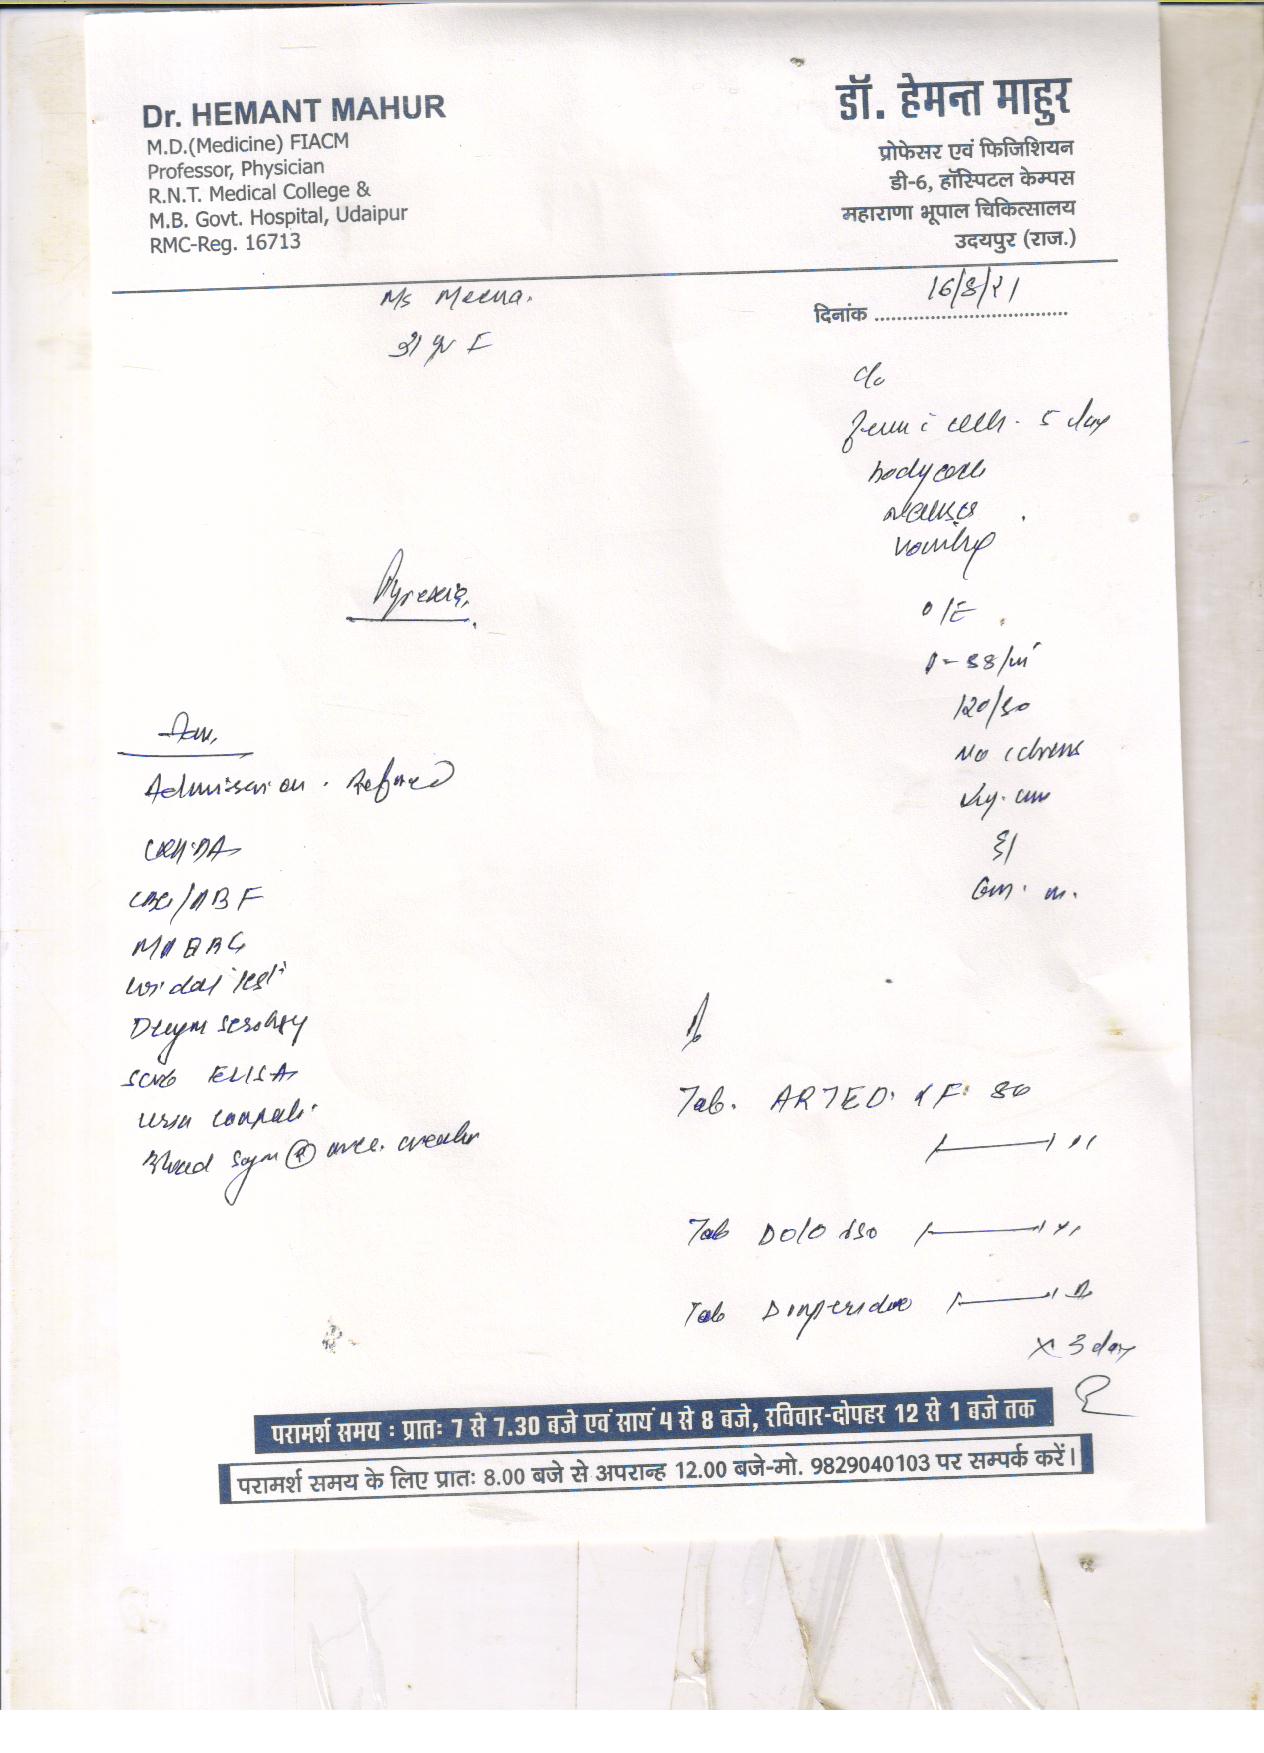 Dr. HEMANT MAHUR
M.D.(Medicine) FIACM
Professor, Physician
R.N.T. Medical College &
M.B. Govt. Hospital, Udaipur
RMC-Reg. 16713
डॉ. हेमन्त माहुर
प्रोफेसर एवं फिजिशियन
डी-6, हॉस्पिटल केम्पस
महाराणा भूपाल चिकित्सालय
उदयपुर (राज.)
Ms Meena.
दिनांक 16/8/21
c/o
5 day
bodyache
nausea
vomiting
Pyrexia.
O/E
P- 88/m
120/80
No icterus
Adv.
Admission. Refused
CBC/PBF
Widal Test
Dengue serology
Scrub ELISA
Urine complete
Blood sugar (R) urea. creatin
Tab. ARTED
Tab Dolo 650
Tab Domperidone
x 3 day
परामर्श समय : प्रातः 7 से 7.30 बजे एवं सायं 4 से 8 बजे, रविवार-दोपहर 12 से 1 बजे तक
परामर्श समय के लिए प्रातः 8.00 बजे से अपरान्ह 12.00 बजे-मो. 9829040103 पर सम्पर्क करें।